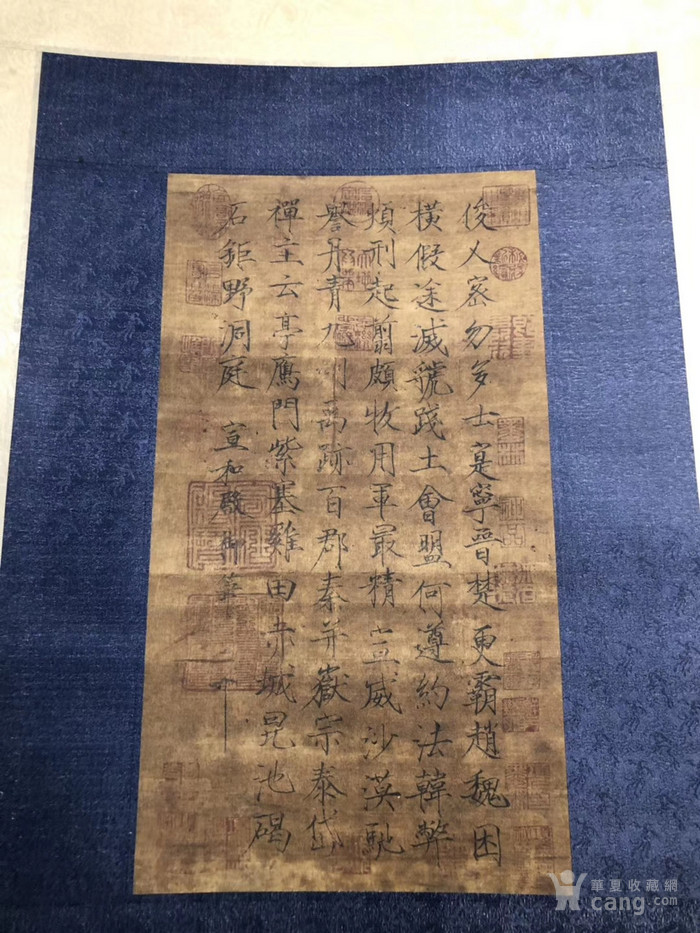 俊乂密勿多士寔寧晉楚更霸趙魏困
橫假途滅虢踐土會盟何遵約法韓弊
煩刑起翦頗牧用軍最精宣威沙漠馳
譽丹青九州禹跡百郡秦并嶽宗泰岱
禪主云亭鴈門紫塞雞田赤城昆池碣
石鉅野洞庭 宣和殿御筆
華夏收藏網
cang.com